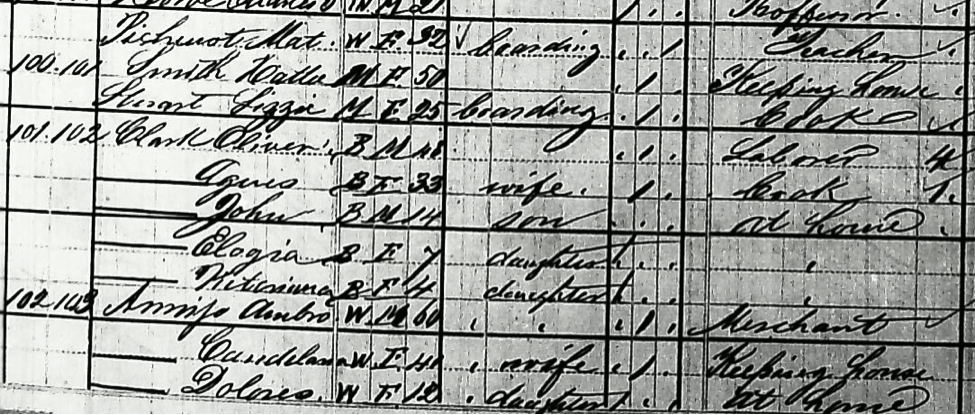 W M 21
Mat. W F 32 boarding 1 Teacher
100.101 Smith M F 50 1 Keeping house
Stuart Lizzie M F 25 boarding 1 Cook
101.102 Clark Oliver B M 48 1 Laborer 4
Agnes B F 33 wife 1 Cook 1
John B M 14 son at home
B F 7 daughter
B F 4 daughter
102.103 W M 60 1 Merchant
W F 41 wife 1 Keeping house
Dolores W F 12 daughter at home